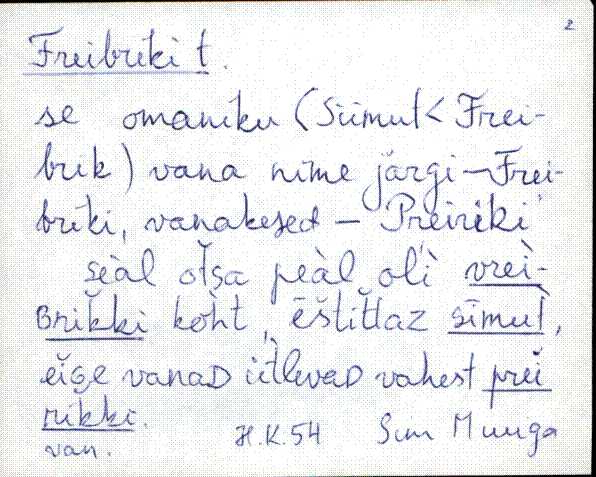 2
Freibriki t.
se omaniku (Siimut < Frei-
brik) vana nime järgi – Frei-
briki, vanakesed – Preiriki
seàl oťsa peàl, oli vreì-
Brikki koht, ēštitlaz sīmut,
eiGe vanaD ütlevaD vahest preì
rikki.
van. H.K. 54 Sim Muuga